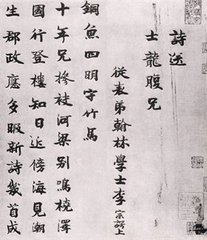 詩送
士龍腹兄
從表弟翰林學士李宗諤上
銅魚四明字竹馬
十年兄捧袂河梁別鳴橈澤
國行登樓知日近傍海見潮
生郡政應多暇新詩幾首成